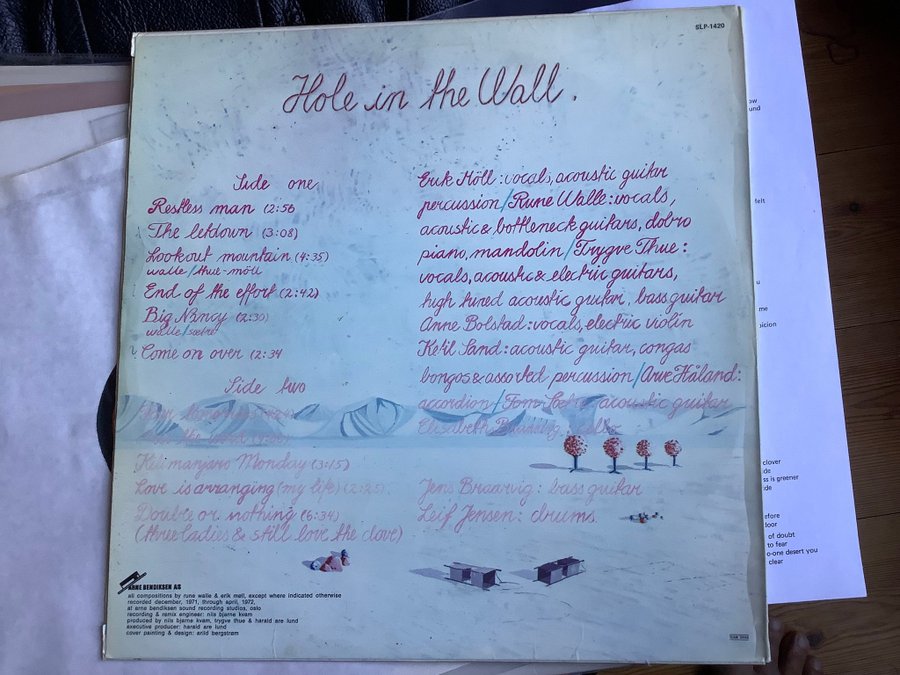 SLP-1420
Hole in the Wall.
Side one
Restless man (2:56
The letdown (3:08)
Lookout mountain (4:35)
walle/thue-möll
End of the effort (2:42)
Big Nancy (2:30)
walle/sæbø
Come on over (2:34
Side two
Kilimanjaro Monday (3:15)
Love is arranging (my life) (2:25)
Double or nothing (6:34)
(three ladies & still love the dove)
Erik Möll: vocals, acoustic guitar
percussion/Rune Walle: vocals,
acoustic & bottleneck guitars, dobro
piano, mandolin/Trygve Thue:
vocals, acoustic & electric guitars,
high tuned acoustic guitar, bass guitar
Anne Bolstad: vocals, electric violin
Ketil Sand: acoustic guitar, congas
bongos & assorted percussion/Arve Håland:
accordion/Tom acoustic guitar
Elisabeth
Jens Braarvig: bass guitar
Leif Jensen: drums.
ARNE BENDIKSEN AS
all compositions by rune walle & erik møll, except where indicated otherwise
recorded december, 1971, through april, 1972,
at arne bendiksen sound recording studios, oslo
recording & remix engineer: nils bjarne kvam
produced by nils bjarne kvam, trygve thue & harald are lund
executive producer: harald are lund
cover painting & design: arild bergstrøm
felt
me
picion
clover
ss is greener
of doubt
to fear
o-one desert you
clear